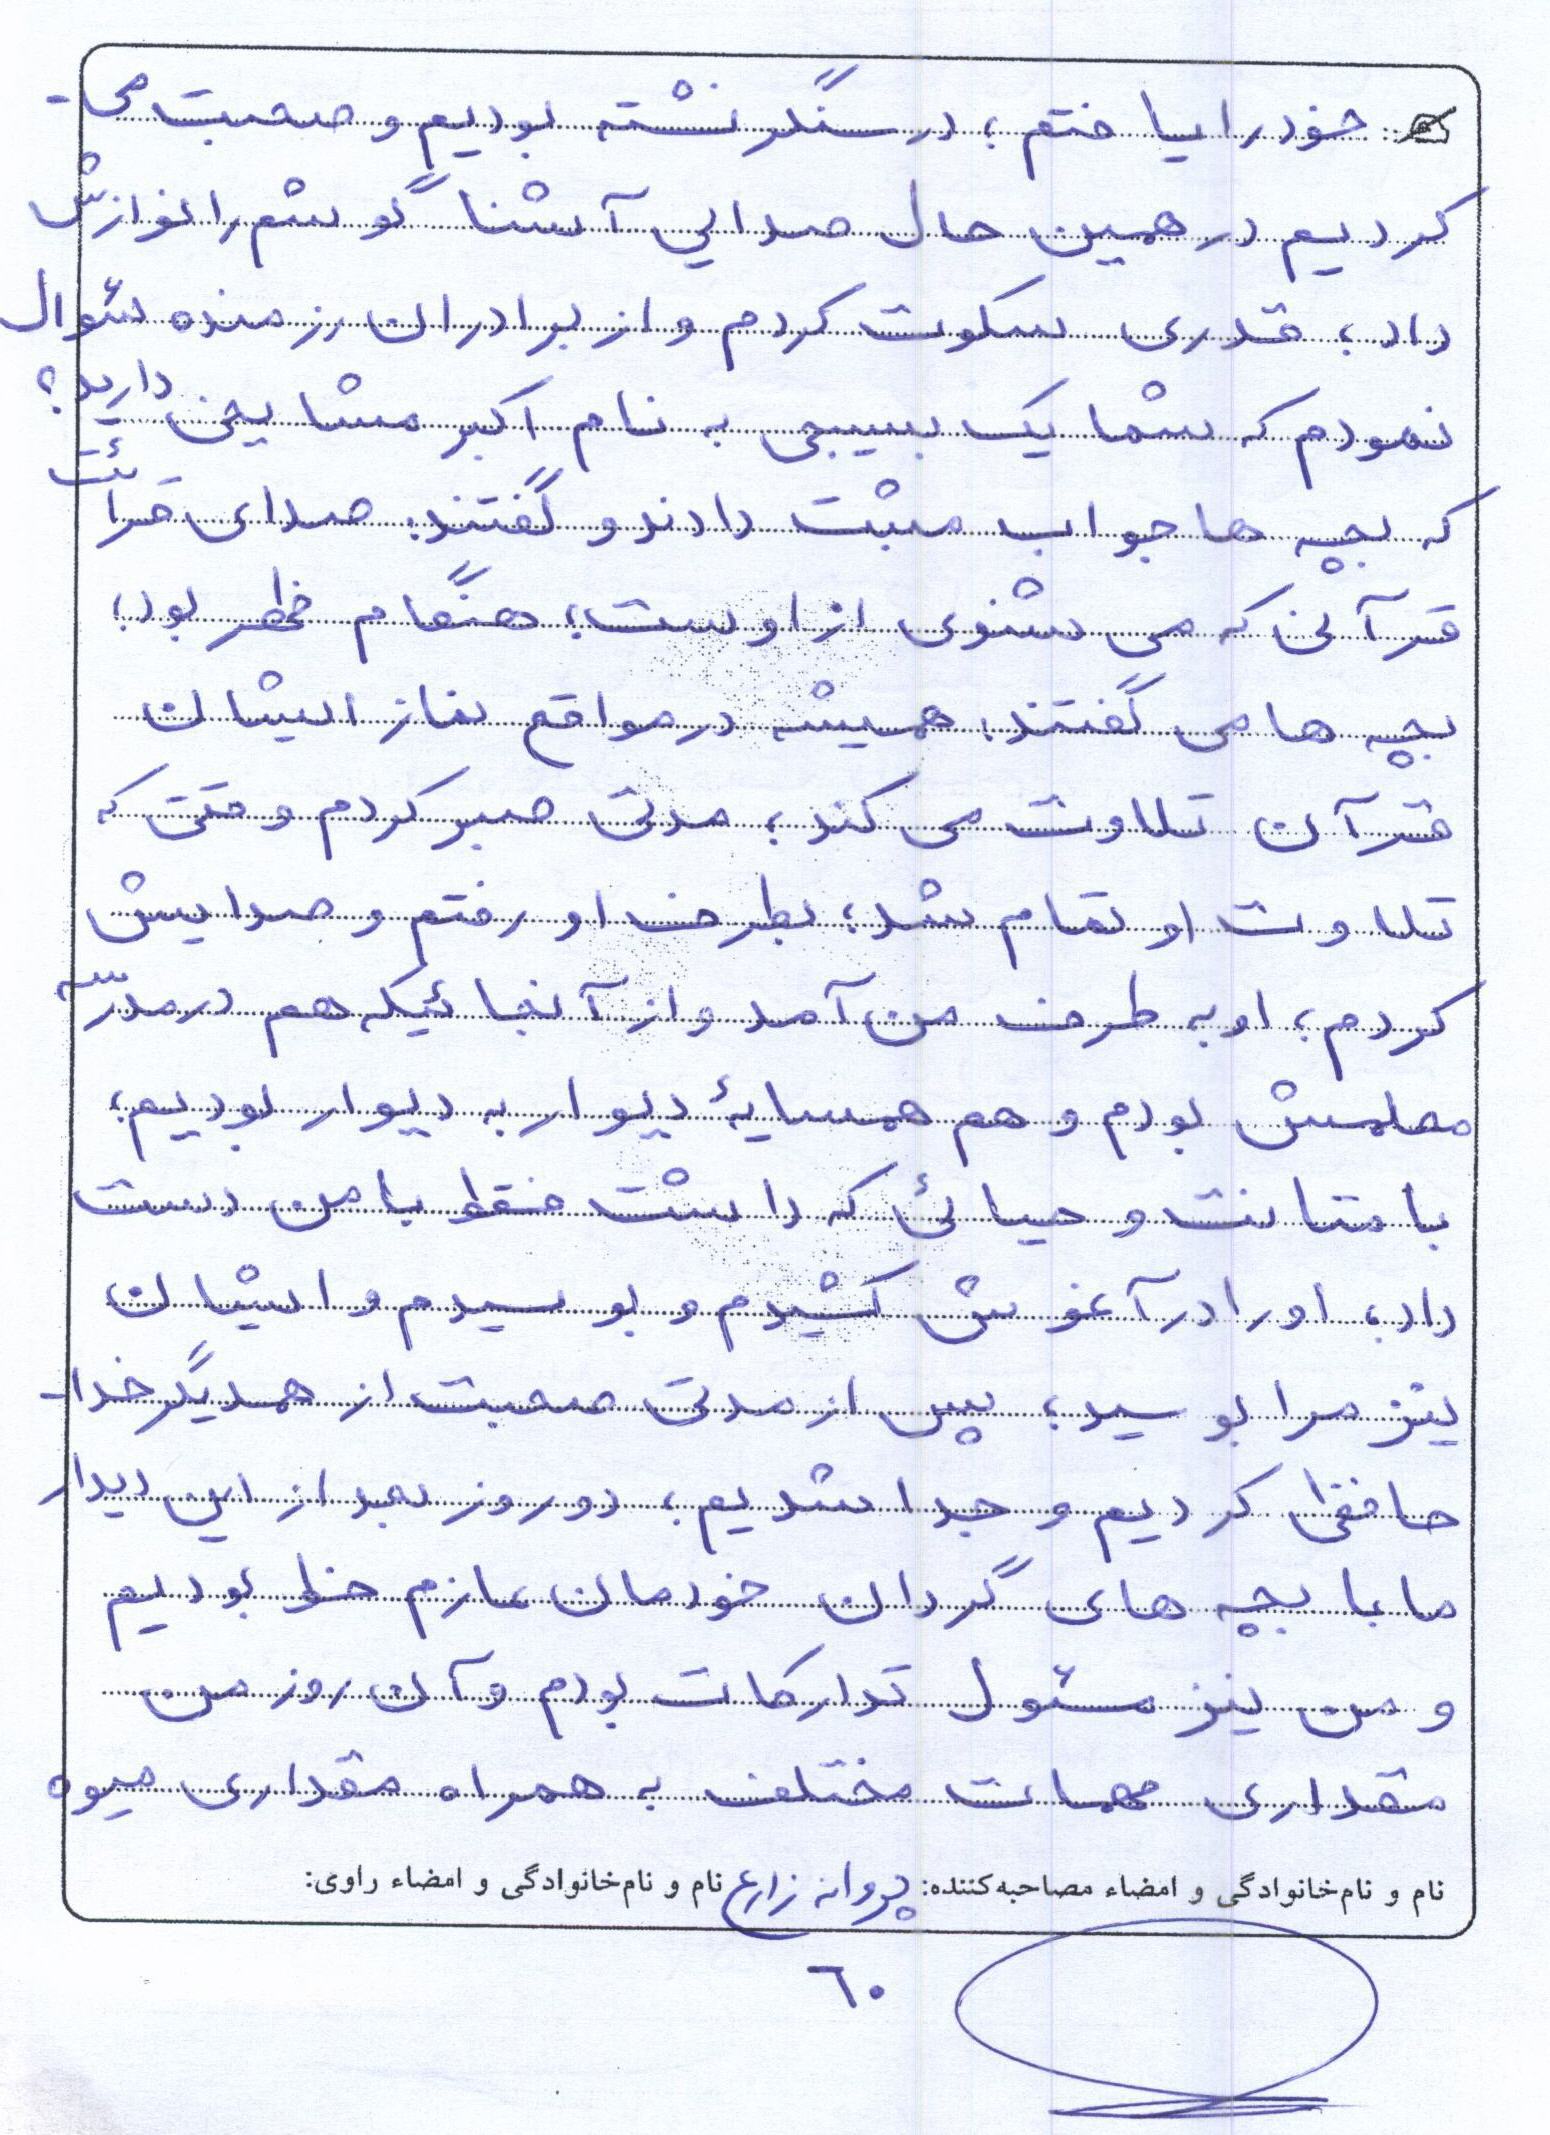 خود را یافتم؛ در سنگر نشسته بودیم و صحبت می-
کردیم در همین حال صدایی آشنا گوشم را نوازش
داد؛ قدری سکوت کردم و از برادران رزمنده سئوال
نمودم که شما یک بسیجی به نام اکبر مشایخی دارید؟
که بچه ها جواب مثبت دادند و گفتند: صدای قرائت
قرآنی که می شنوی از اوست؛ هنگام ظهر بود؛
بچه ها می گفتند: همیشه در مواقع نماز ایشان
قرآن تلاوت می کند؛ مدتی صبر کردم وقتی که
تلاوت او تمام شد؛ بطرف او رفتم و صدایش
کردم؛ او به طرف من آمد و از آنجائیکه هم در مدرسه
معلمش بودم و هم همسایهٔ دیوار به دیوار بودیم؛
با متانت و حیائی که داشت فقط با من دست
داد؛ او را در آغوش کشیدم و بوسیدم و ایشان
نیز مرا بوسید؛ پس از مدتی صحبت از همدیگر خدا-
حافظی کردیم و جدا شدیم؛ دو روز بعد از این دیدار
ما با بچه های گردان خودمان عازم خط بودیم
و من نیز مسئول تدارکات بودم و آن روز من
مقداری مهمات مختلف به همراه مقداری میوه
نام و نام‌خانوادگی و امضاء مصاحبه‌کننده: پروانه زارع نام و نام‌خانوادگی و امضاء راوی:
٦٠